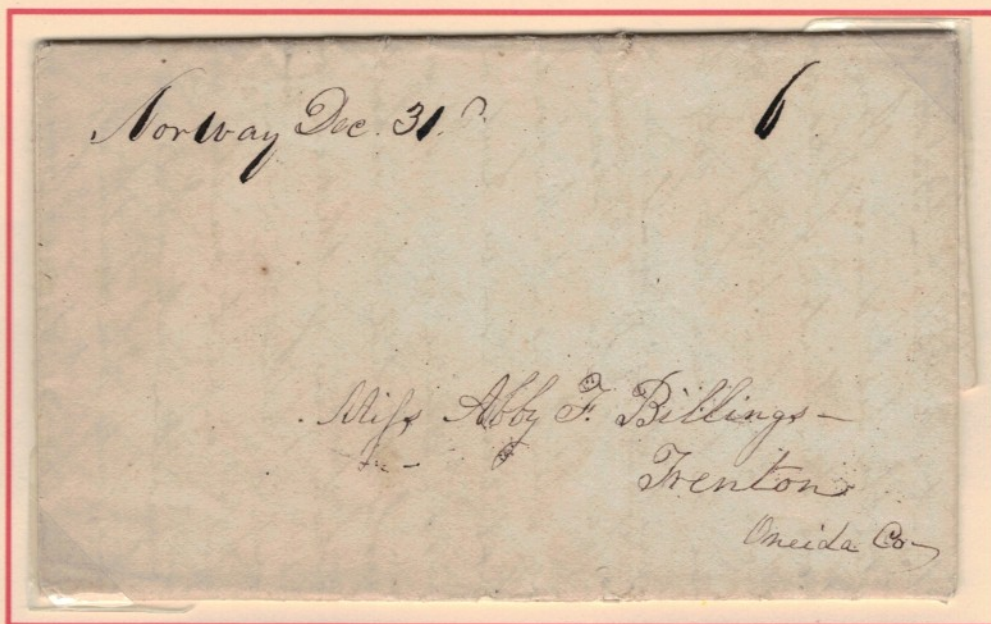 Norway Dec. 31. 6
Miss Abby F. Billings –
Trenton
Oneida Co –